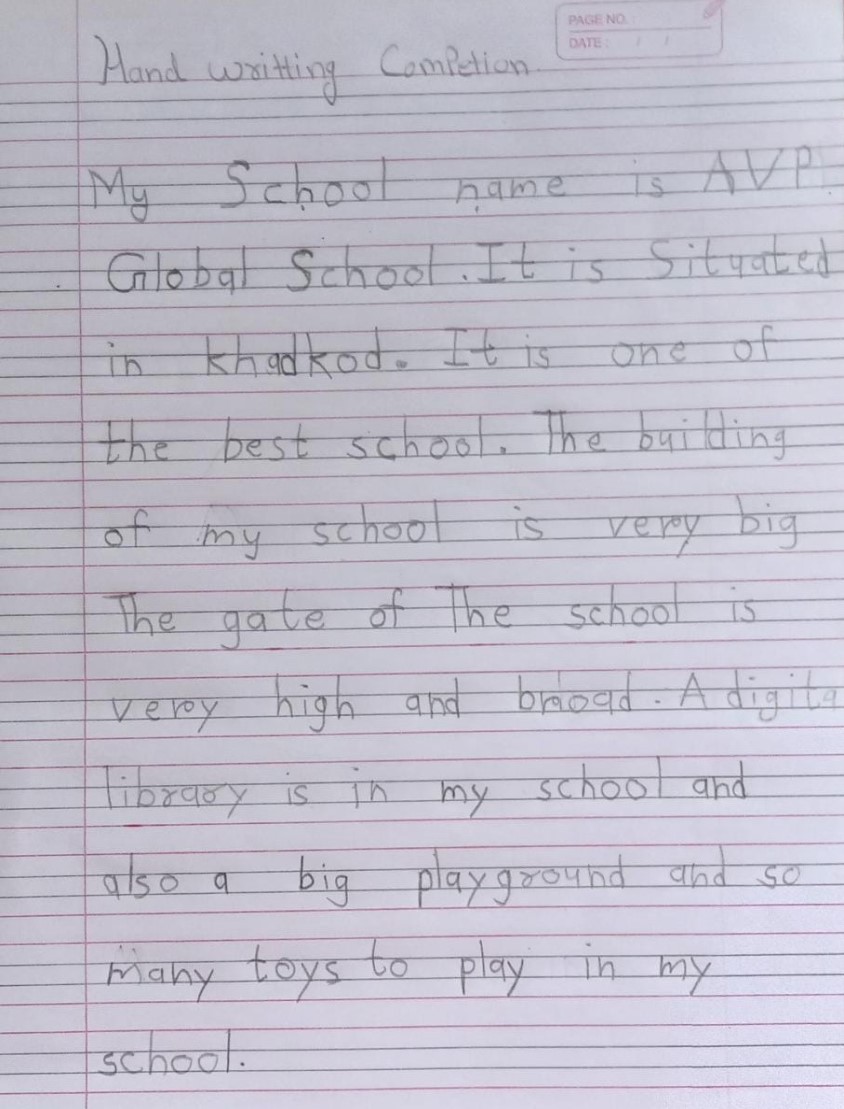 PAGE NO.:
DATE: / /
Hand writting Competion
My School name is AVP
Global School. It is Situated
in khadkod. It is one of
the best school. The building
of my school is very big
The gate of The school is
very high and broad. A digita
library is in my school and
also a big playground and so
many toys to play in my
school.